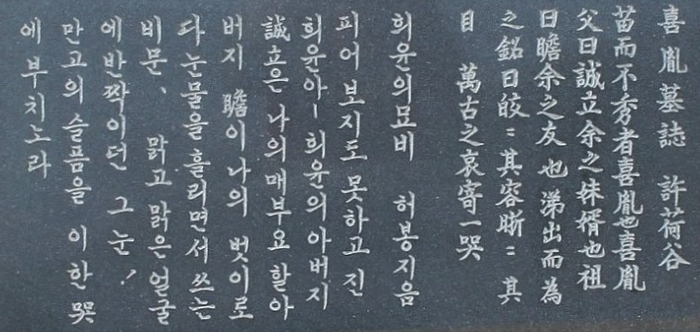 喜胤墓誌 許荷谷
苗而不秀者喜胤也喜胤
父曰誠立余之妹婿也祖
曰瞻余之友也涕出而為
之銘曰皎〻其容晰〻其
目 萬古之哀寄一哭
희윤의묘비 허봉지음
피어보지도 못하고 진
희윤아― 희윤의아버지
誠立은 나의 매부요 할아
버지 瞻이 나의 벗이로
다 눈물을 흘리면서 쓰는
비문、 맑고 맑은 얼굴
에 반짝이던 그 눈!
만고의 슬픔을 이 한 哭
에 부치노라